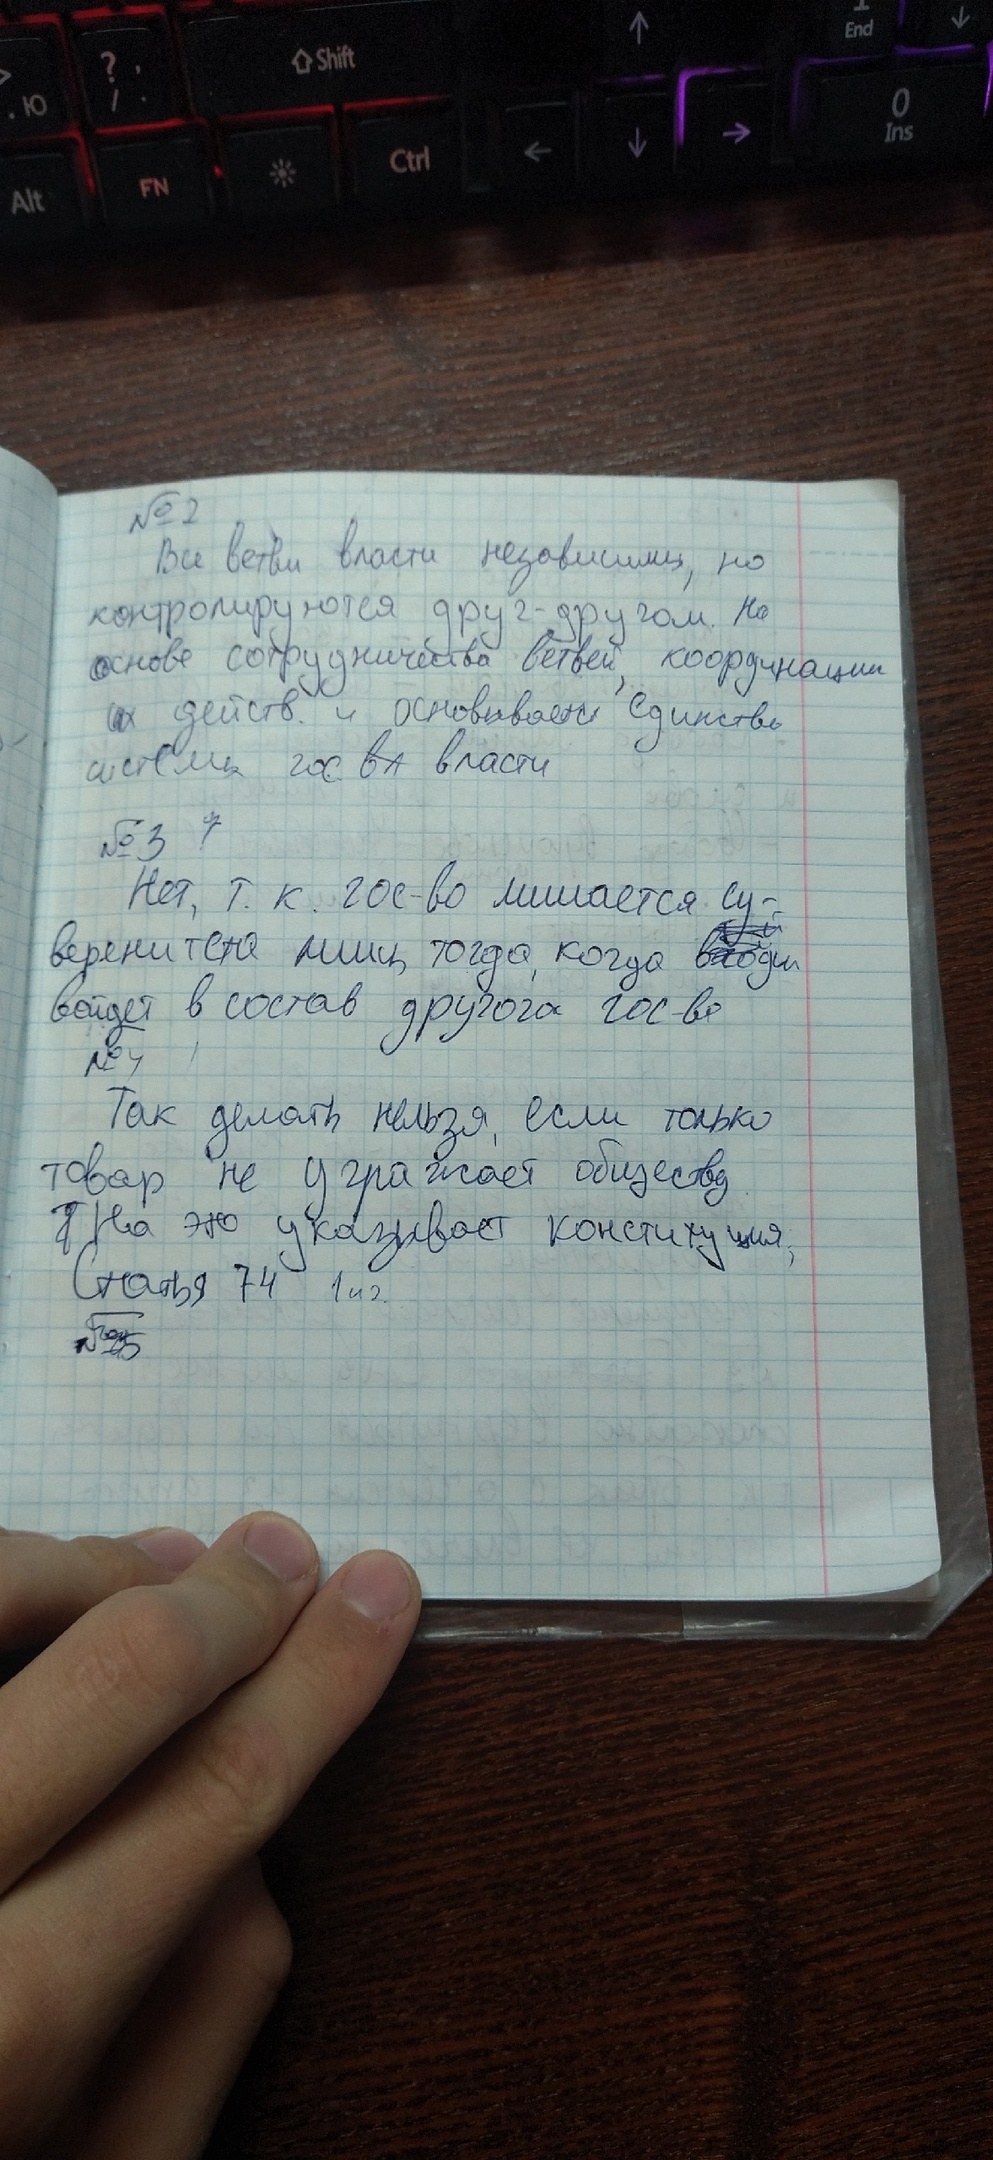 > ? , ⇧Shift ↑ 1 End ↓
. Ю / .
Alt FN Ctrl ← ↓ → 0 Ins
№2
Все ветви власти независимы, но
контролируются друг-другом. На
основе сотрудничества ветвей, координации
их действ. и основывается единство
системы гос власти
№3
Нет, т. к. гос-во лишается су-
веренитета лишь тогда, когда
войдет в состав другога гос-ва
№4
Так делать нельзя, если только
товар не угражает обществу
На это указывает конституция,
Статья 74 1 и 2.